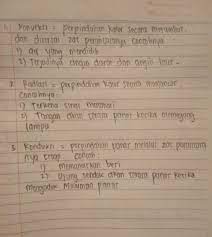 1. Konveksi = perpindahan kalor secara
dan disertai zat perantaranya contohnya
1) air yang mendidih
2) Terjadinya angin darat dan angin laut.
2. Radiasi = perpindahan kalor secara memancar
Contohnya.
1) Terkena sinar matahari
2) Tangan akan terasa panas ketika memegang
lampu
3. Konduksi = perpindahan panas melalui zat perantara
nya tetap. contoh:
1) memanaskan besi
2) Ujung sendok akan terasa panas ketika
mengaduk minuman panas